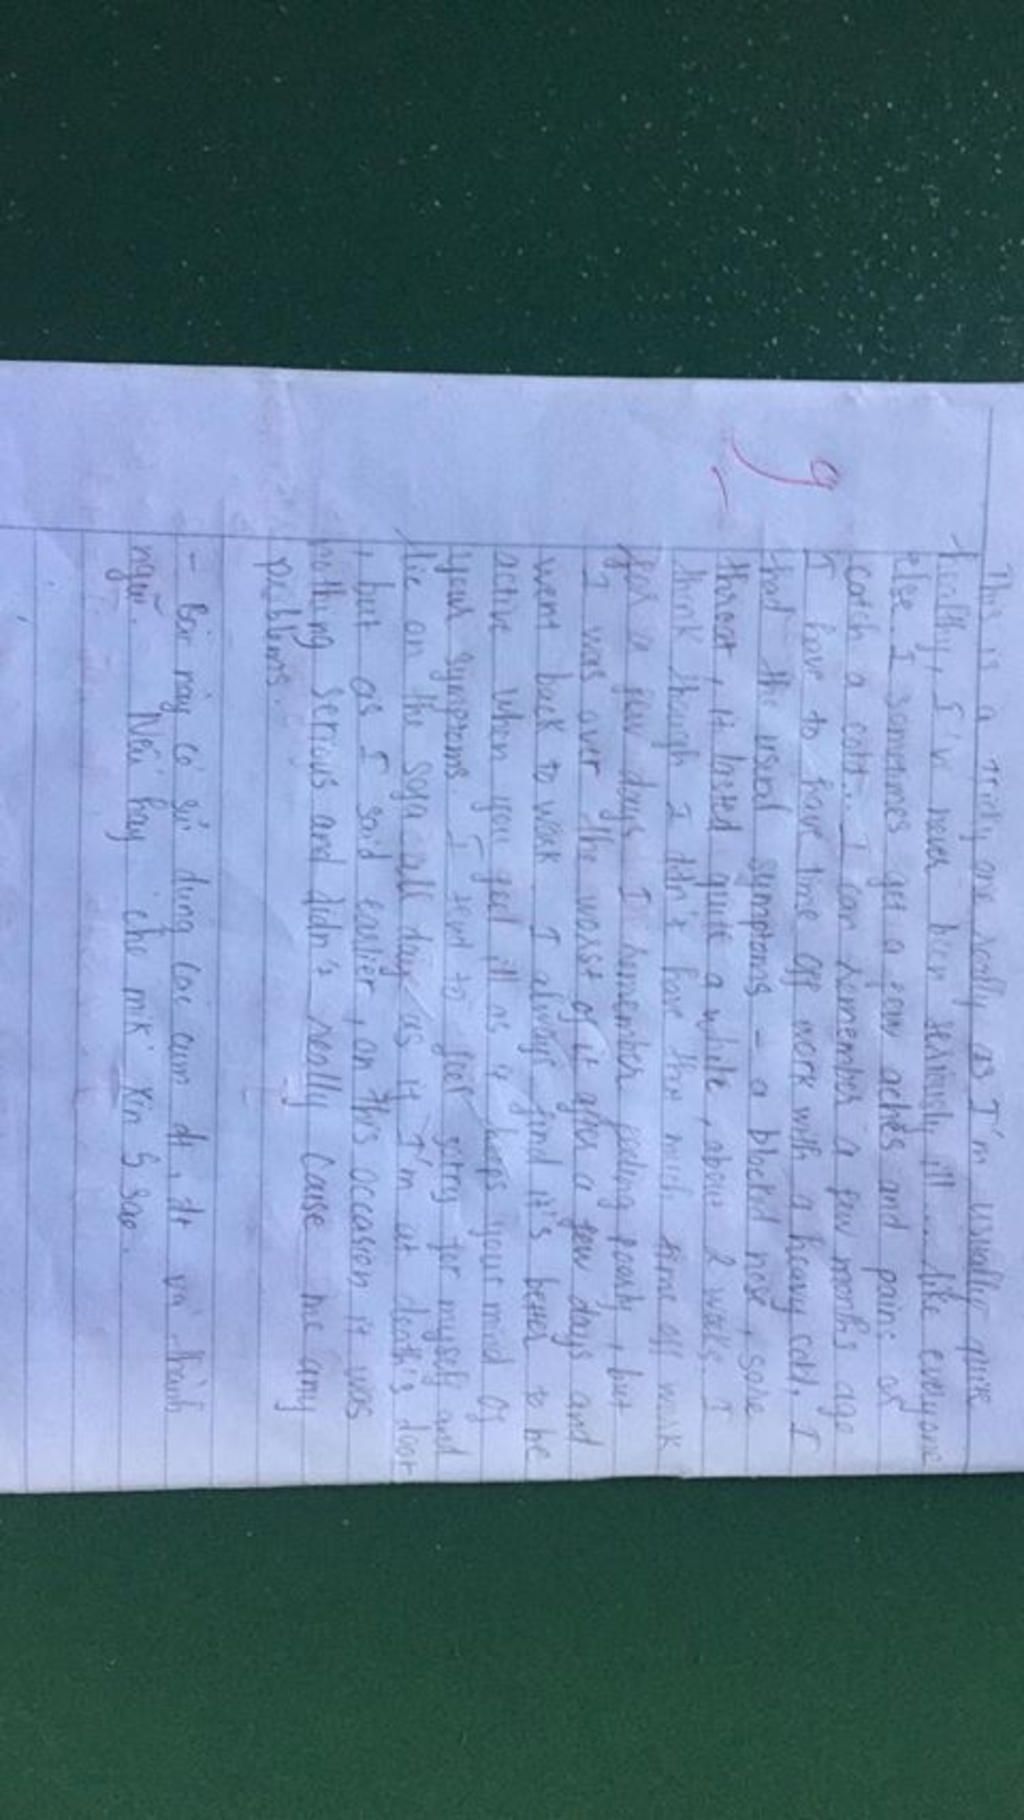 This is a tricky one really as I'm usually quite
healthy, I've never been seriously ill.... like everyone
else I sometimes get a few aches and pains or
catch a cold... I can remember a few months ago
I have to have time off work with a heavy cold. I
had the usual symptoms - a blocked nose, sore
throat, it lasted quite a while, about 2 weeks. I
think though I didn't have that much time off work
for a few days I remember feeling poorly, but
I was over the worst of it after a few days and
went back to work. I always find it's better to be
active when you feel ill as it keeps your mind of
your symptoms. I tend to feel sorry for myself and
lie on the sofa all day as if I'm at death's door
, but as I said earlier, on this occasion it was
nothing serious and didn't really cause me any
problems.
- Bài này có sử dụng các cụm đt, dt và thành
ngữ. Nếu hay cho mk xin 5 sao.
9